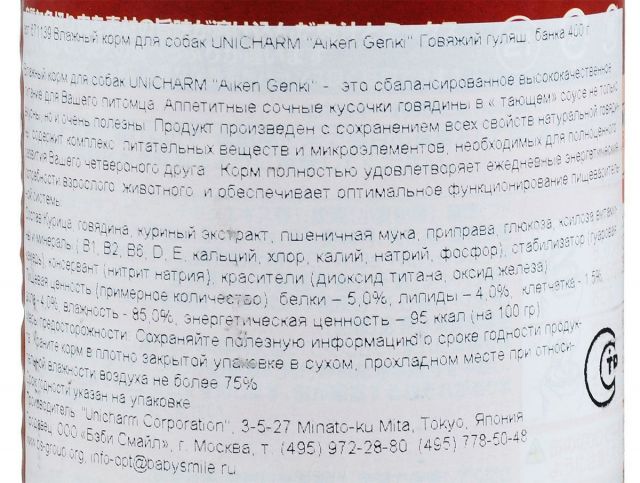 671139 Влажный корм для собак UNICHARM "Aiken Genki" Говяжий гуляш, банка 400 г
корм для собак UNICHARM "Aiken Genki" - это сбалансированное высококачественное
для Вашего питомца. Аппетитные сочные кусочки говядины в « тающем» соусе не только
но и очень полезны. Продукт произведен с сохранением всех свойств натуральной
содержит комплекс питательных веществ и микроэлементов, необходимых для полноценного
Вашего четвероного друга. Корм полностью удовлетворяет ежедневные энергетические
взрослого животного и обеспечивает оптимальное функционирование
системы.
Курица, говядина, куриный экстракт, пшеничная мука, приправа, глюкоза,
( B1, B2, B6, D, E, кальций, хлор, калий, натрий, фосфор), стабилизатор
консервант (нитрит натрия), красители (диоксид титана, оксид железа)
ценность (примерное количество) белки – 5,0%, липиды – 4,0%, клетчатка - 1,5%
4,0%, влажность - 85,0%, энергетическая ценность – 95 ккал (на 100 гр)
предосторожности: Сохраняйте полезную информацию о сроке годности
Храните корм в плотно закрытой упаковке в сухом, прохладном месте при относи-
влажности воздуха не более 75%
годности указан на упаковке
"Unicharm Corporation", 3-5-27 Minato-ku Mita, Tokyo, Япония
ООО «Бэби Смайл», г. Москва, т. (495) 972-28-80 (495) 778-50-48
info-opt@babysmile.ru